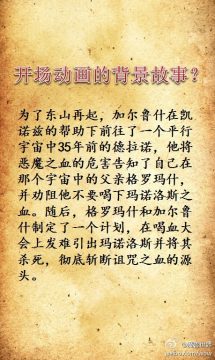 开场动画的背景故事?
为了东山再起，加尔鲁什在凯
诺兹的帮助下前往了一个平行
宇宙中35年前的德拉诺，他将
恶魔之血的危害告知了自己在
那个宇宙中的父亲格罗玛什，
并劝阻他不要喝下玛诺洛斯之
血。随后，格罗玛什和加尔鲁
什制定了一个计划，在喝血大
会上发难引出玛诺洛斯并将其
杀死，彻底斩断诅咒之血的源
头。